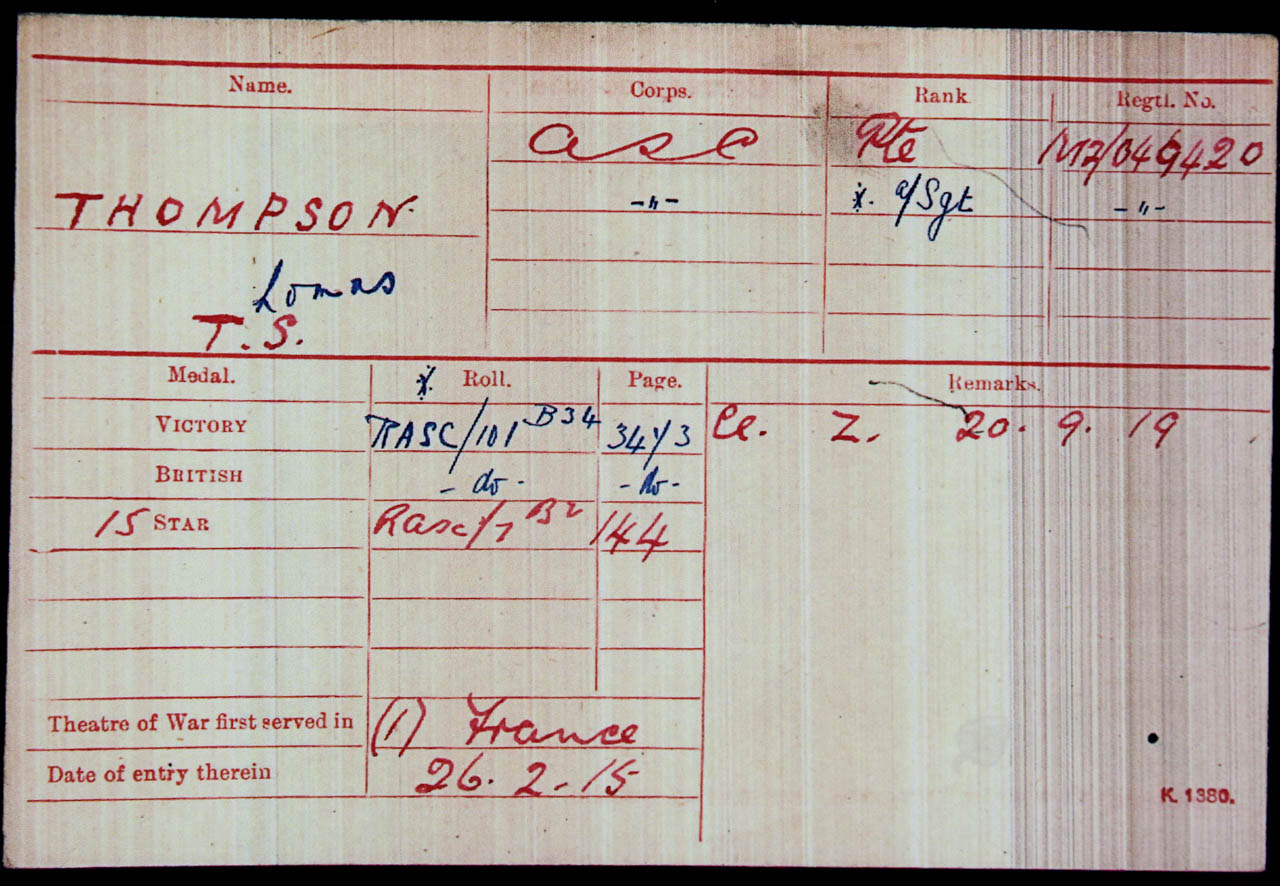 Name. Corps. Rank Regtl. No.
ASC Pte M2/049420
THOMPSON -"- *. a/Sgt -"-
Lomas
T.S.
Medal. *. Roll. Page. Remarks.
VICTORY RASC/101 B34 3473 Cl. Z. 20. 9. 19
BRITISH - do - - do -
15 STAR Rasc/7 B2 144
Theatre of War first served in (1) France
Date of entry therein 26. 2. 15
K. 1380.